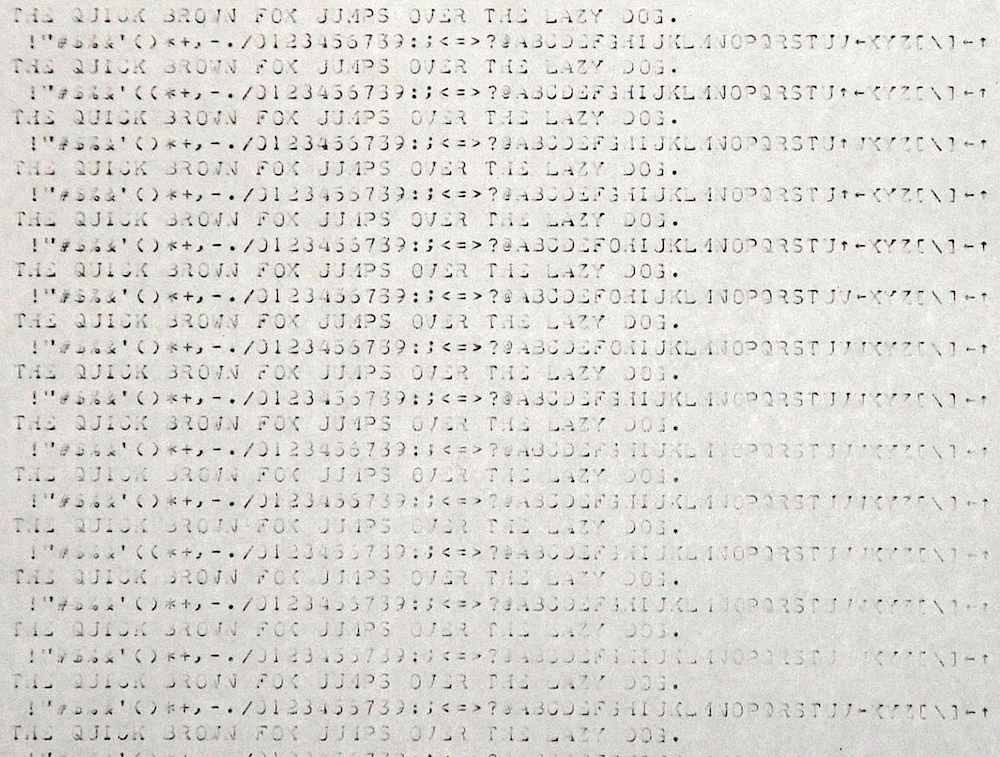 THE QUICK BROWN FOX JUMPS OVER THE LAZY DOG.
!"#$%&'()*+,-./0123456789:;<=>?@ABCDEFGHIJKLMNOPQRSTUV←XYZ[\]←↑
THE QUICK BROWN FOX JUMPS OVER THE LAZY DOG.
!"#$%&'((*+,-./0123456789:;<=>?@ABCDEFGHIJKLMNOPQRSTU↑←XYZ[\]←↑
THE QUICK BROWN FOX JUMPS OVER THE LAZY DOG.
!"#$%&'()*+,-./0123456789:;<=>?@ABCDEFGHIJKLMNOPQRSTU↑WXYZ[\]←↑
THE QUICK BROWN FOX JUMPS OVER THE LAZY DOG.
!"#$%&'()*+,-./0123456789:;<=>?@ABCDEFGHIJKLMNOPQRSTU↑←XYZ[\]←↑
THE QUICK BROWN FOX JUMPS OVER THE LAZY DOG.
!"#$%&'()*+,-./0123456789:;<=>?@ABCDEFOHIJKLMNOPQRSTU↑←XYZ[\]←↑
THE QUICK BROWN FOX JUMPS OVER THE LAZY DOG.
!"#$%&'()*+,-./0123456789:;<=>?@ABCDEFOHIJKLMNOPQRSTUV←XYZ[\]←↑
THE QUICK BROWN FOX JUMPS OVER THE LAZY DOG.
!"#$%&'()*+,-./0123456789:;<=>?@ABCDEFOHIJKLMNOPQRSTUVWXYZ[\]←↑
THE QUICK BROWN FOX JUMPS OVER THE LAZY DOG.
!"#$%&'()*+,-./0123456789:;<=>?@ABCDEFGHIJKLMNOPQRSTUVWXYZ[\]←↑
THE QUICK BROWN FOX JUMPS OVER THE LAZY DOG.
!"#$%&'()*+,-./0123456789:;<=>?@ABCDEFGHIJKLMNOPQRSTUVWXYZ[\]←↑
THE QUICK BROWN FOX JUMPS OVER THE LAZY DOG.
!"#$%&'()*+,-./0123456789:;<=>?@ABCDEFGHIJKLMNOPQRSTUVWXYZ[\]←↑
THE QUICK BROWN FOX JUMPS OVER THE LAZY DOG.
!"#$%&'((*+,-./0123456789:;<=>?@ABCDEFGHIJKLMNOPQRSTUVWXYZ[\]←↑
THE QUICK BROWN FOX JUMPS OVER THE LAZY DOG.
!"#$%&'()*+,-./0123456789:;<=>?@ABCDEFGHIJKLMNOPQRSTUVWXYZ[\]←↑
THE QUICK BROWN FOX JUMPS OVER THE LAZY DOG.
!"#$%&'()*+,-./0123456789:;<=>?@ABCDEFGHIJKLMNOPQRSTUVWXYZ[\]←↑
THE QUICK BROWN FOX JUMPS OVER THE LAZY DOG.
!"#$%&'()*+,-./0123456789:;<=>?@ABCDEFGHIJKLMNOPQRSTUV←XYZ[\]←↑
THE QUICK BROWN FOX JUMPS OVER THE LAZY DOG.